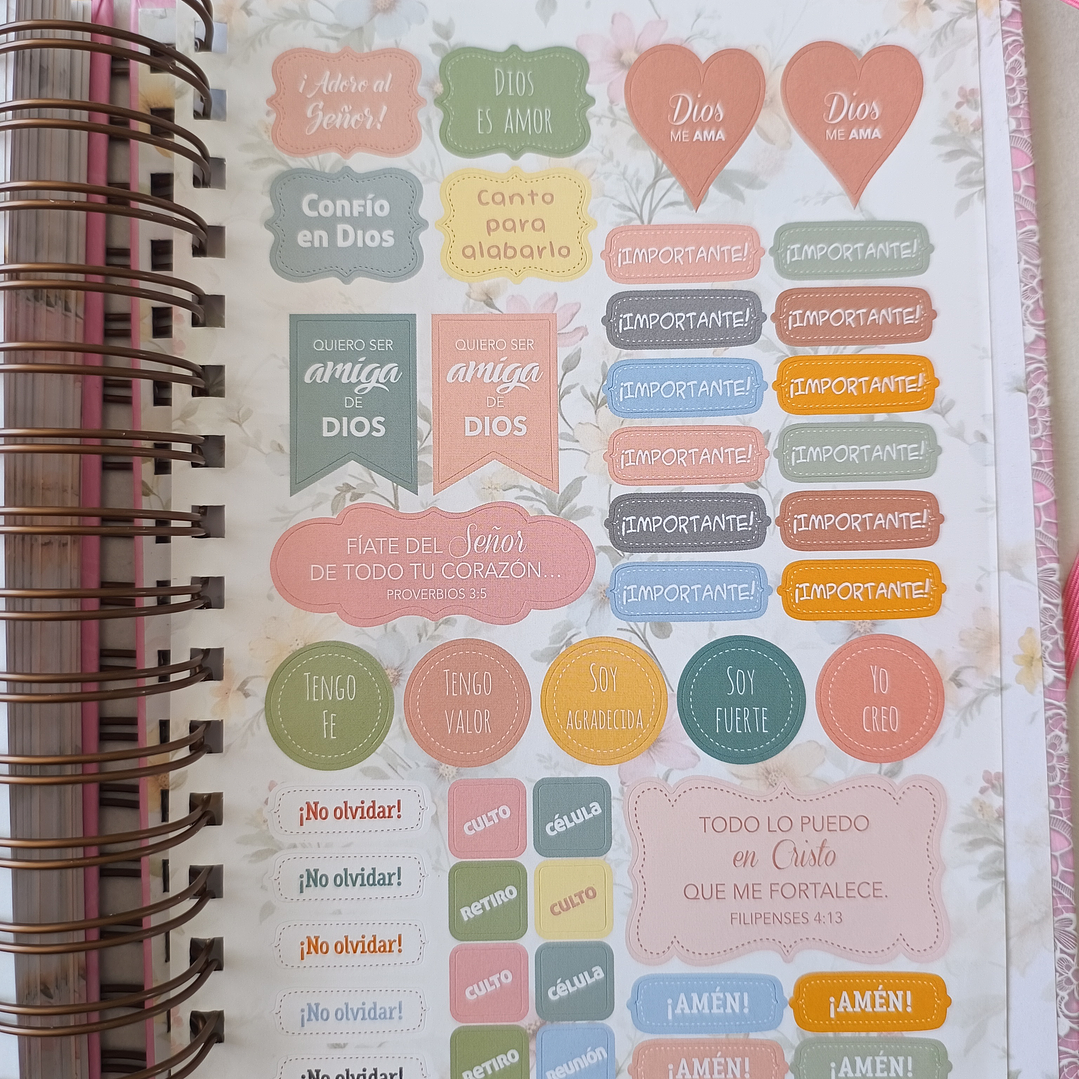 ¡Adoro al
Señor!
DIOS
ES AMOR
Dios
ME AMA
Dios
ME AMA
Confío
en Dios
Canto
para
alabarlo
¡IMPORTANTE!
¡IMPORTANTE!
¡IMPORTANTE!
¡IMPORTANTE!
¡IMPORTANTE!
¡IMPORTANTE!
¡IMPORTANTE!
¡IMPORTANTE!
¡IMPORTANTE!
¡IMPORTANTE!
¡IMPORTANTE!
¡IMPORTANTE!
QUIERO SER
amiga
DE
DIOS
QUIERO SER
amiga
DE
DIOS
FÍATE DEL Señor
DE TODO TU CORAZÓN...
PROVERBIOS 3:5
TENGO
FE
TENGO
VALOR
SOY
AGRADECIDA
SOY
FUERTE
YO
CREO
¡No olvidar!
¡No olvidar!
¡No olvidar!
¡No olvidar!
¡No olvidar!
CULTO
Célula
RETIRO
CULTO
CULTO
Célula
RETIRO
Reunión
TODO LO PUEDO
en Cristo
QUE ME FORTALECE.
FILIPENSES 4:13
¡AMÉN!
¡AMÉN!
¡AMÉN!
¡AMÉN!